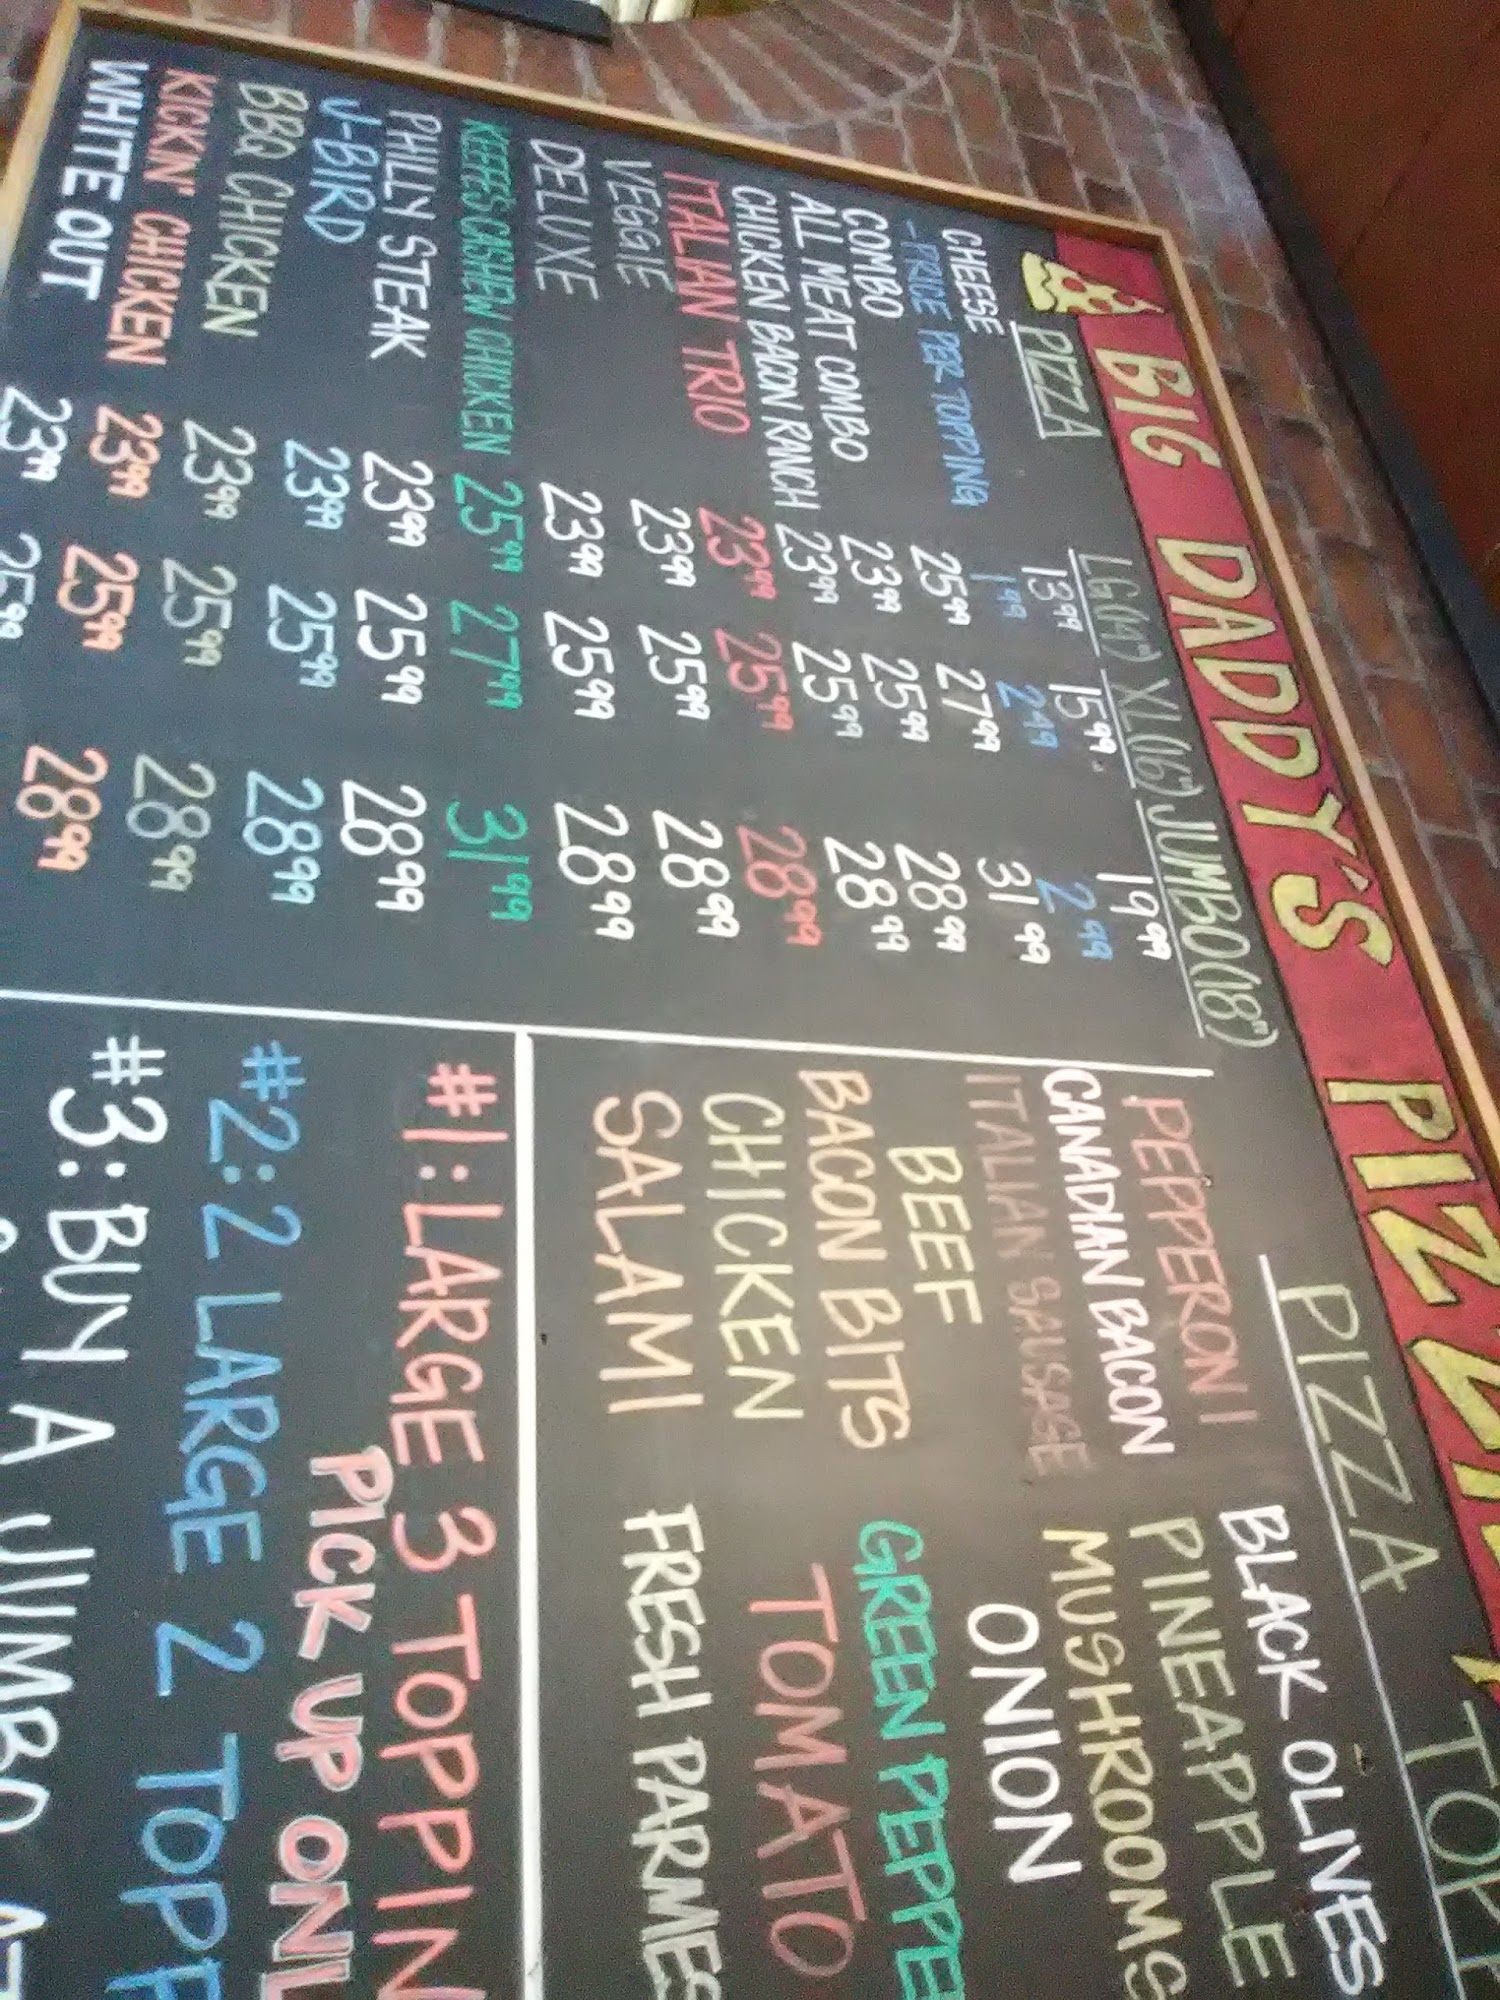 BIG DADDY'S
PIZZA LG(14") XL(16") JUMBO(18")
CHEESE 13.99 15.99 19.99
-PRICE PER TOPPING 1.99 2.49 2.99
COMBO 25.99 27.99 31.99
ALL MEAT COMBO 23.99 25.99 28.99
CHICKEN BACON RANCH 23.99 25.99 28.99
ITALIAN TRIO 23.99 25.99 28.99
VEGGIE 23.99 25.99 28.99
DELUXE 23.99 25.99 28.99
KEEFE'S CASHEW CHICKEN 25.99 27.99 31.99
PHILLY STEAK 23.99 25.99 28.99
J-BIRD 23.99 25.99 28.99
BBQ CHICKEN 23.99 25.99 28.99
KICKN' CHICKEN 23.99 25.99 28.99
WHITE OUT 23.99 25.99
PIZZA
PEPPERONI BLACK OLIVES
CANADIAN BACON PINEAPPLE
ITALIAN SAUSAGE MUSHROOMS
BEEF ONION
BACON BITS GREEN PEPPE
CHICKEN TOMATO
SALAMI FRESH PARMES
#1: LARGE 3 TOPPIN
PICK UP ONL
#2: 2 LARGE 2 TOPP
#3: BUY A JUMBO